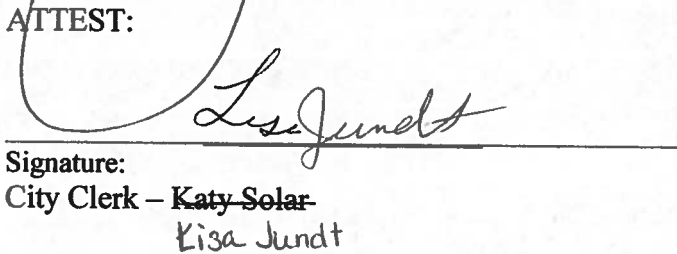 ATTEST:
Lisa Jundt
Signature:
City Clerk – Katy Solar
Lisa Jundt